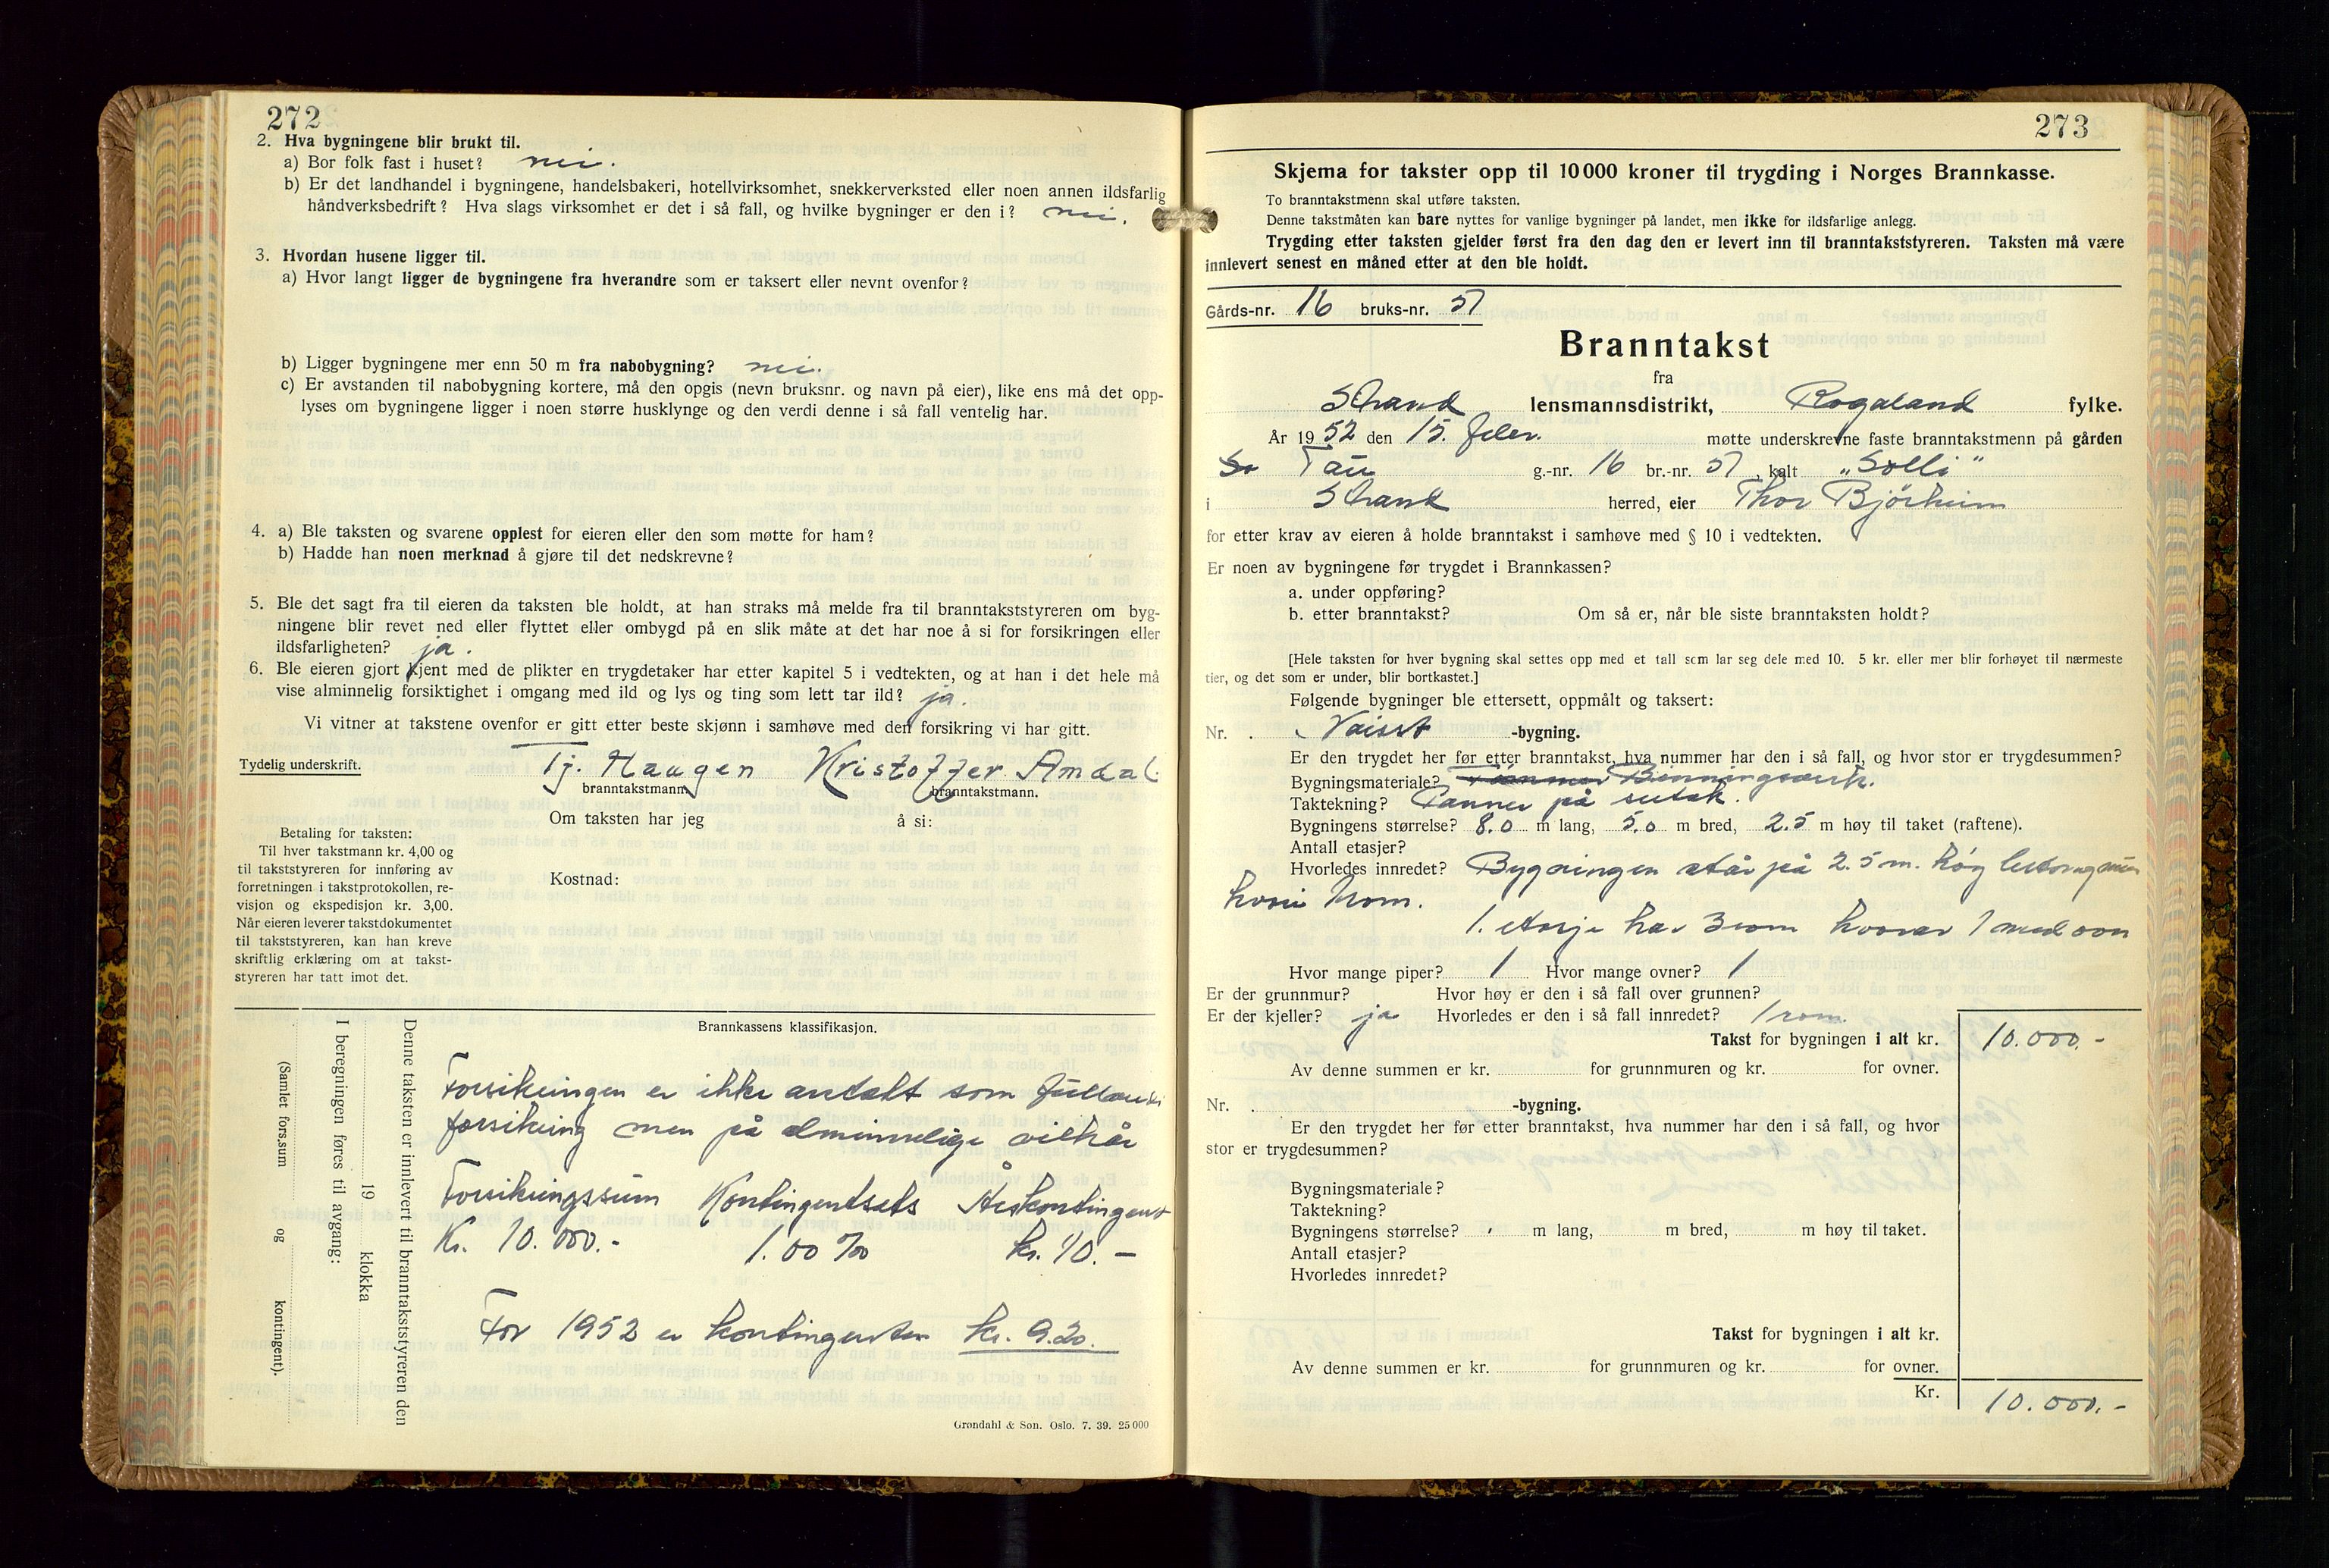 272
2. Hva bygningene blir brukt til.
a) Bor folk fast i huset? nei.
b) Er det landhandel i bygningene, handelsbakeri, hotellvirksomhet, snekkerverksted eller noen annen ildsfarlig
håndverksbedrift? Hva slags virksomhet er det i så fall, og hvilke bygninger er den i? nei.
3. Hvordan husene ligger til.
a) Hvor langt ligger de bygningene fra hverandre som er taksert eller nevnt ovenfor?
b) Ligger bygningene mer enn 50 m fra nabobygning? nei.
c) Er avstanden til nabobygning kortere, må den opgis (nevn bruksnr. og navn på eier), like ens må det opp-
lyses om bygningene ligger i noen større husklynge og den verdi denne i så fall ventelig har.
4. a) Ble taksten og svarene opplest for eieren eller den som møtte for ham?
b) Hadde han noen merknad å gjøre til det nedskrevne?
5. Ble det sagt fra til eieren da taksten ble holdt, at han straks må melde fra til branntakststyreren om byg-
ningene blir revet ned eller flyttet eller ombygd på en slik måte at det har noe å si for forsikringen eller
ildsfarligheten? ja.
6. Ble eieren gjort kjent med de plikter en trygdetaker har etter kapitel 5 i vedtekten, og at han i det hele må
vise alminnelig forsiktighet i omgang med ild og lys og ting som lett tar ild? ja.
Vi vitner at takstene ovenfor er gitt etter beste skjønn i samhøve med den forsikring vi har gitt.
Tydelig underskrift. Tj. Haugen Kristoffer Amdal
branntakstmann. branntakstmann.
Om taksten har jeg å si:
Kostnad:
Betaling for taksten:
Til hver takstmann kr. 4,00 og
til takststyreren for innføring av
forretningen i takstprotokollen, re-
visjon og ekspedisjon kr. 3,00.
Når eieren leverer takstdokumentet
til takststyreren, kan han kreve
skriftlig erklæring om at takst-
styreren har tatt imot det.
Denne taksten er innlevert til branntakststyreren den
19 klokka
I beregningen føres til avgang:
(Samlet fors.sum og kontingent).
Brannkassens klassifikasjon.
Forsikringen er ikke antatt som
forsikring men på alminnelige vilkår
Forsikringssum Kontingentsats Årskontingent
Kr. 10.000.- 1.00 ‰ kr. 10.-
For 1952 er kontingenten kr. 9.20.
Grøndahl & Søn. Oslo. 7. 39. 25 000
273
Skjema for takster opp til 10 000 kroner til trygding i Norges Brannkasse.
To branntakstmenn skal utføre taksten.
Denne takstmåten kan bare nyttes for vanlige bygninger på landet, men ikke for ildsfarlige anlegg.
Trygding etter taksten gjelder først fra den dag den er levert inn til branntakststyreren. Taksten må være
innlevert senest en måned etter at den ble holdt.
Gårds-nr. 16 bruks-nr. 57
Branntakst
fra
Strand lensmannsdistrikt, Rogaland fylke.
År 1952 den 15. febr. møtte underskrevne faste branntakstmenn på gården
Tau g.-nr. 16 br.-nr. 57, kalt "Solli"
i Strand herred, eier Thor Bjørheim
for etter krav av eieren å holde branntakst i samhøve med § 10 i vedtekten.
Er noen av bygningene før trygdet i Brannkassen?
a. under oppføring?
b. etter branntakst? Om så er, når ble siste branntaksten holdt?
[Hele taksten for hver bygning skal settes opp med et tall som lar seg dele med 10. 5 kr. eller mer blir forhøyet til nærmeste
tier, og det som er under, blir bortkastet.]
Følgende bygninger ble ettersett, oppmålt og taksert:
Nr. Naust -bygning.
Er den trygdet her før etter branntakst, hva nummer har den i så fall, og hvor stor er trygdesummen?
Bygningsmateriale? Tømmer Binningsverk.
Taktekning? Panner på sutak.
Bygningens størrelse? 8.0 m lang, 5.0 m bred, 2.5 m høy til taket (raftene).
Antall etasjer?
Hvorledes innredet? Bygningen står på 2.5 m. høg betongmur
hvori 1 rom.
1. etasje har 3 rom hvorav 1 med ovn
Hvor mange piper? 1 Hvor mange ovner? 1
Er der grunnmur? Hvor høy er den i så fall over grunnen?
Er der kjeller? ja Hvorledes er den i så fall innredet? 1 rom.
Takst for bygningen i alt kr. 10.000.-
Av denne summen er kr. for grunnmuren og kr. for ovner.
Nr. -bygning.
Er den trygdet her før etter branntakst, hva nummer har den i så fall, og hvor
stor er trygdesummen?
Bygningsmateriale?
Taktekning?
Bygningens størrelse? m lang, m bred, m høy til taket.
Antall etasjer?
Hvorledes innredet?
Takst for bygningen i alt kr.
Av denne summen er kr. for grunnmuren og kr. for ovner.
Kr. 10.000.-